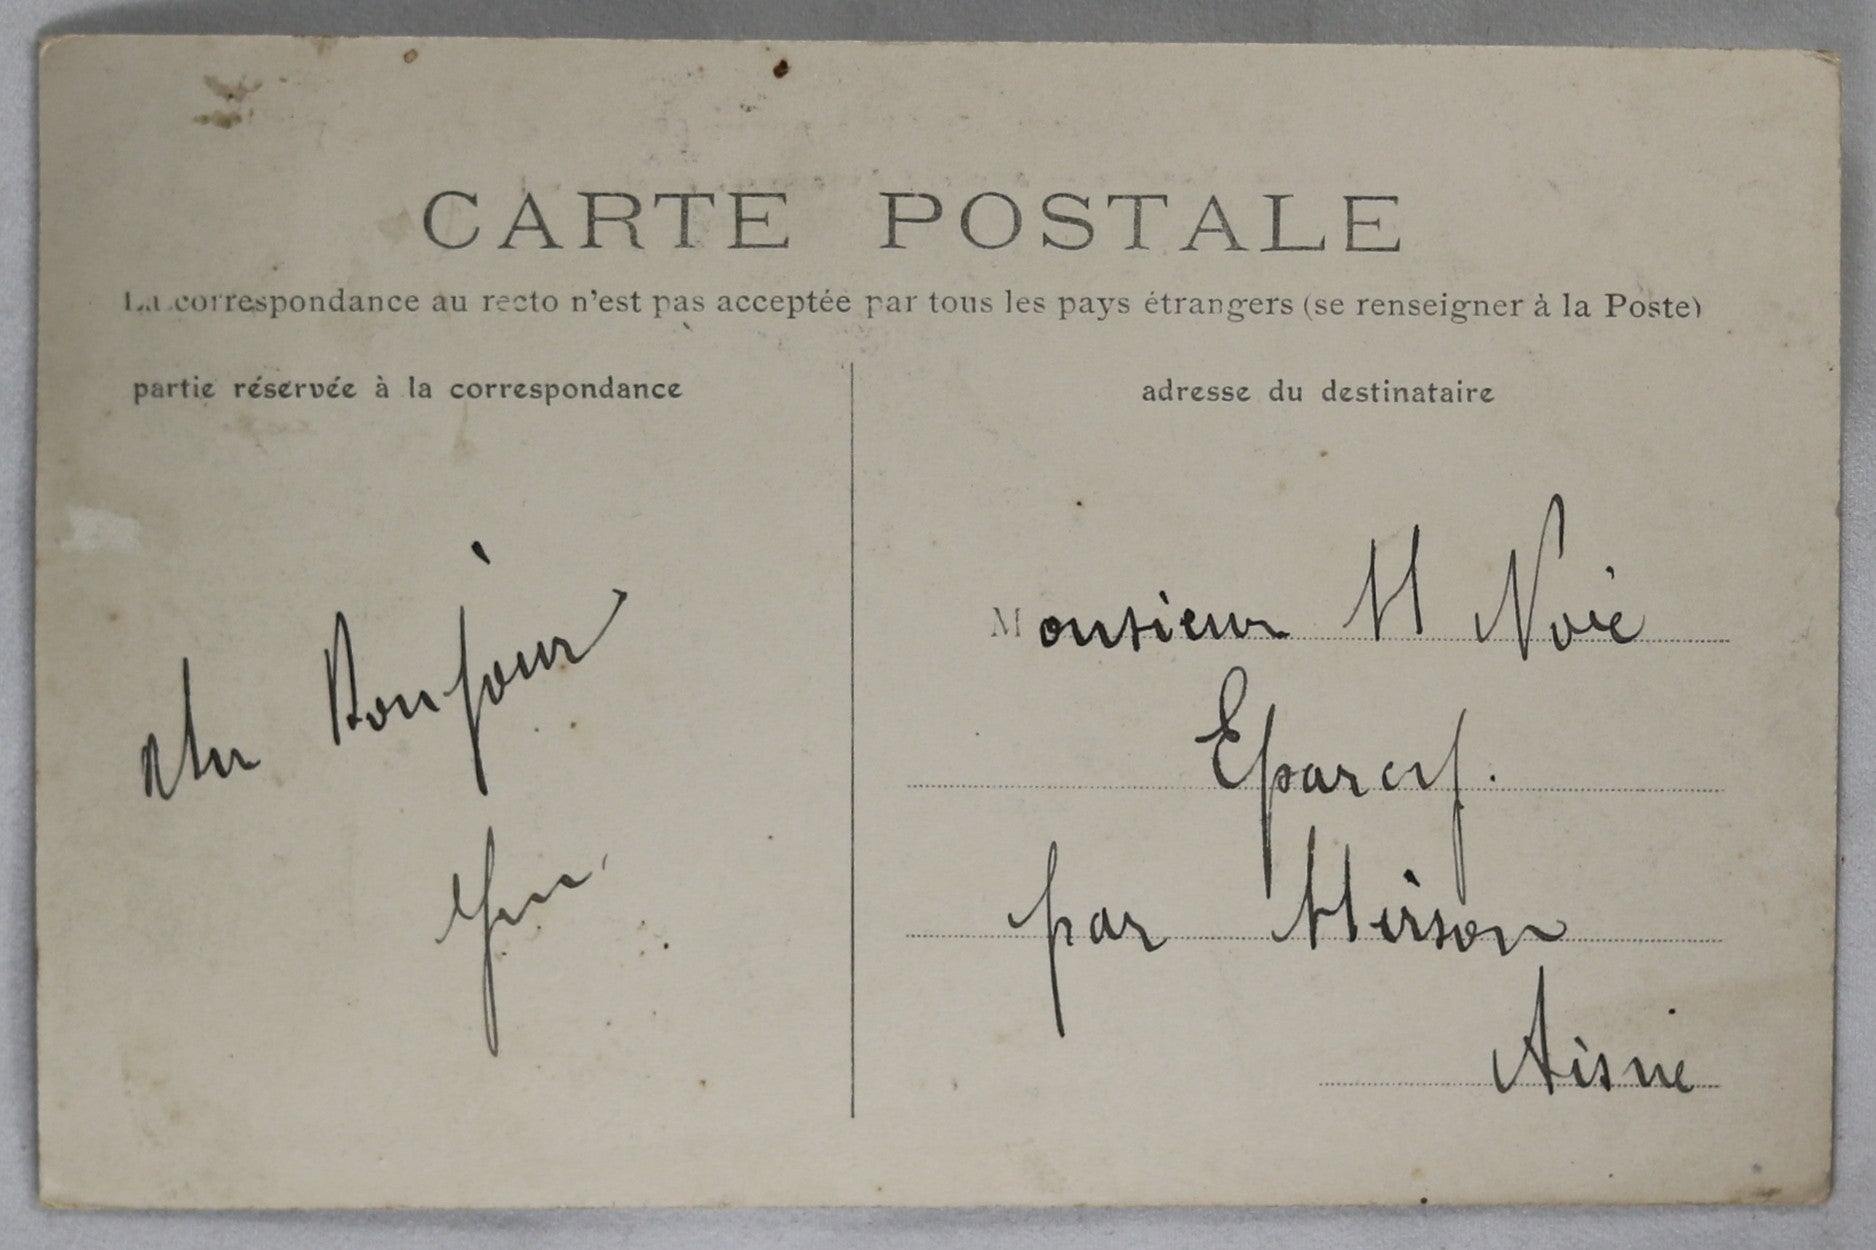 CARTE POSTALE
La correspondance au recto n'est pas acceptée par tous les pays étrangers (se renseigner à la Poste)
partie réservée à la correspondance
Bonjour
adresse du destinataire
Monsieur H
Eparcy.
par Hirson
Aisne